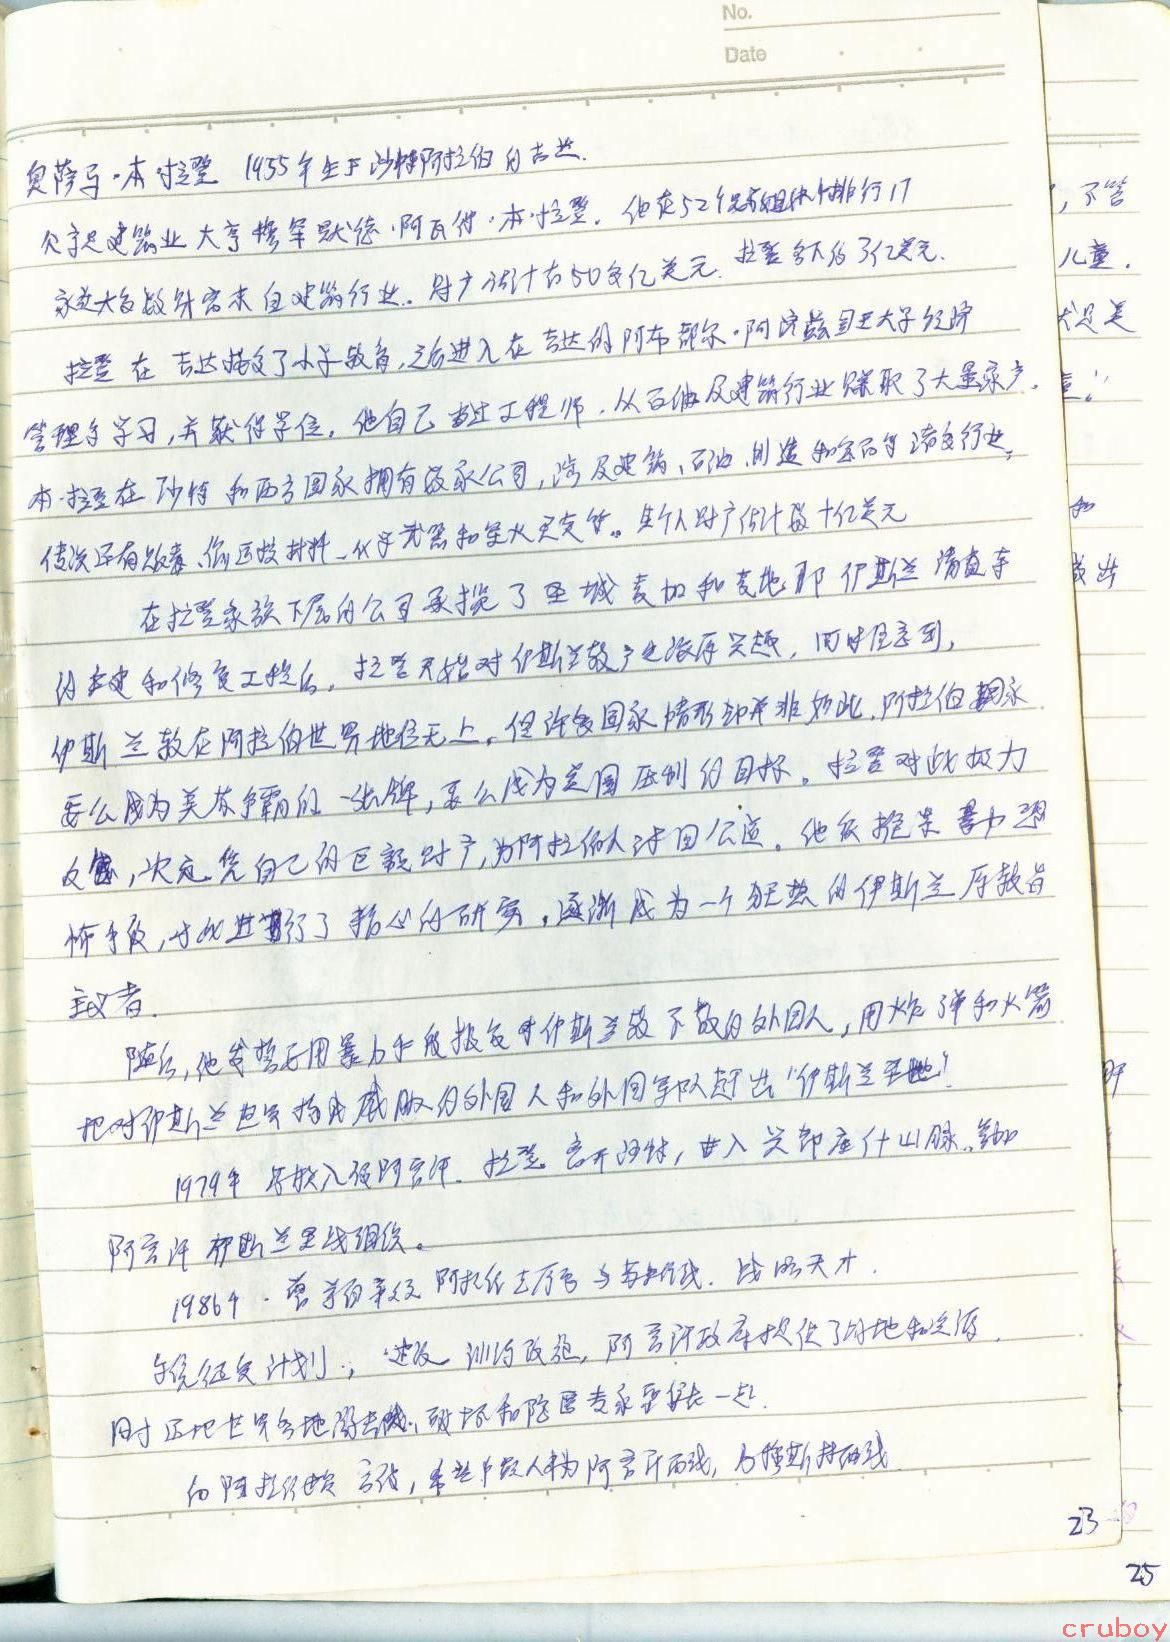 No.
Date
奥萨马·本·拉登 1955年生于沙特阿拉伯的吉达.
父亲是建筑业大亨穆罕默德·阿瓦德·本·拉登. 他在52个兄弟姐妹中排行17
家族大多数财富来自建筑行业. 财产估计有50多亿美元. 拉登个人约3亿美元.
拉登在吉达接受了小学教育,之后进入在吉达的阿布都尔·阿齐兹国王大学经济
管理系学习,并获得学位. 他自己当过工程师. 从石油及建筑行业赚取了大量家产.
本·拉登在沙特和西方国家拥有数家公司,涉及建筑、石油、制造和 行业.
传说还有 材料、化学武器和军火买卖等. 其个人财产估计数十亿美元
在拉登家族下属的公司承揽了圣城麦加和麦地那伊斯兰清真寺
的扩建和修复工程后, 拉登开始对伊斯兰教产生浓厚兴趣, 同时注意到,
伊斯兰教在阿拉伯世界地位无上. 但许多国家情形却并非如此. 阿拉伯国家
要么成为美苏争霸的一张牌, 要么成为美国压制的目标. 拉登对此极力
反感, 决定凭自己的巨额财产,为阿拉伯人讨回公道. 他崇 暴力恐
怖手段, 对此进行了精心的研究. 逐渐成为一个狂热的伊斯兰原教旨
主义者.
随后, 他发誓要用暴力手段报复对伊斯兰教不敬的外国人, 用炸弹和火箭
把对伊斯兰世界构成威胁的外国人和外国军队赶出“伊斯兰圣地”
1979年 苏联入侵阿富汗. 拉登离开沙特, 进入兴都库什山脉. 参加
阿富汗伊斯兰圣战组织.
1986年. 曾率领 阿拉伯志愿者与苏 战. 战略天才.
征 计划, 建设训练设施, 阿富汗政府提供了场地和资源.
同时还把世界各地游击战、破坏和隐匿专家 在一起.
向阿拉伯 宣传, 去阿富汗参战, 为穆斯林而战
23
25
, 不管
儿童.
和
cruboy